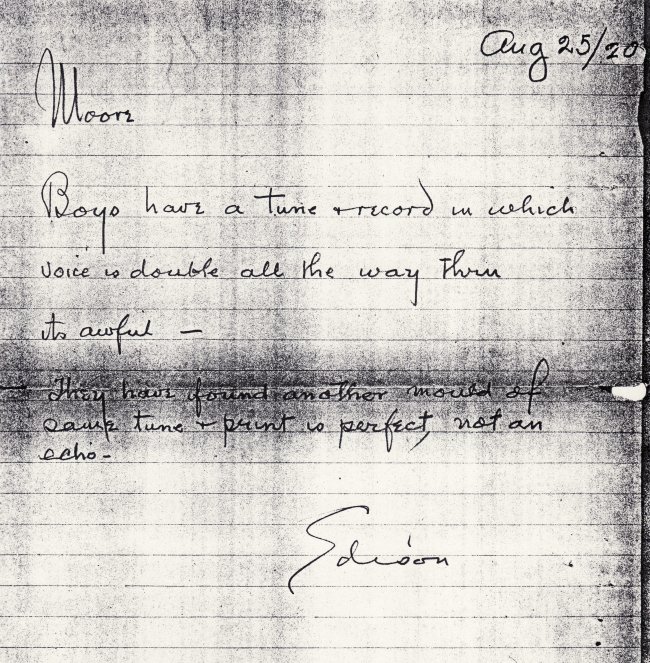 Aug 25/20
Moore
Boys have a tune + record in which
voice is double all the way thru
its awful —
They have found another mould of
same tune + print is perfect, not an
echo -
Edison